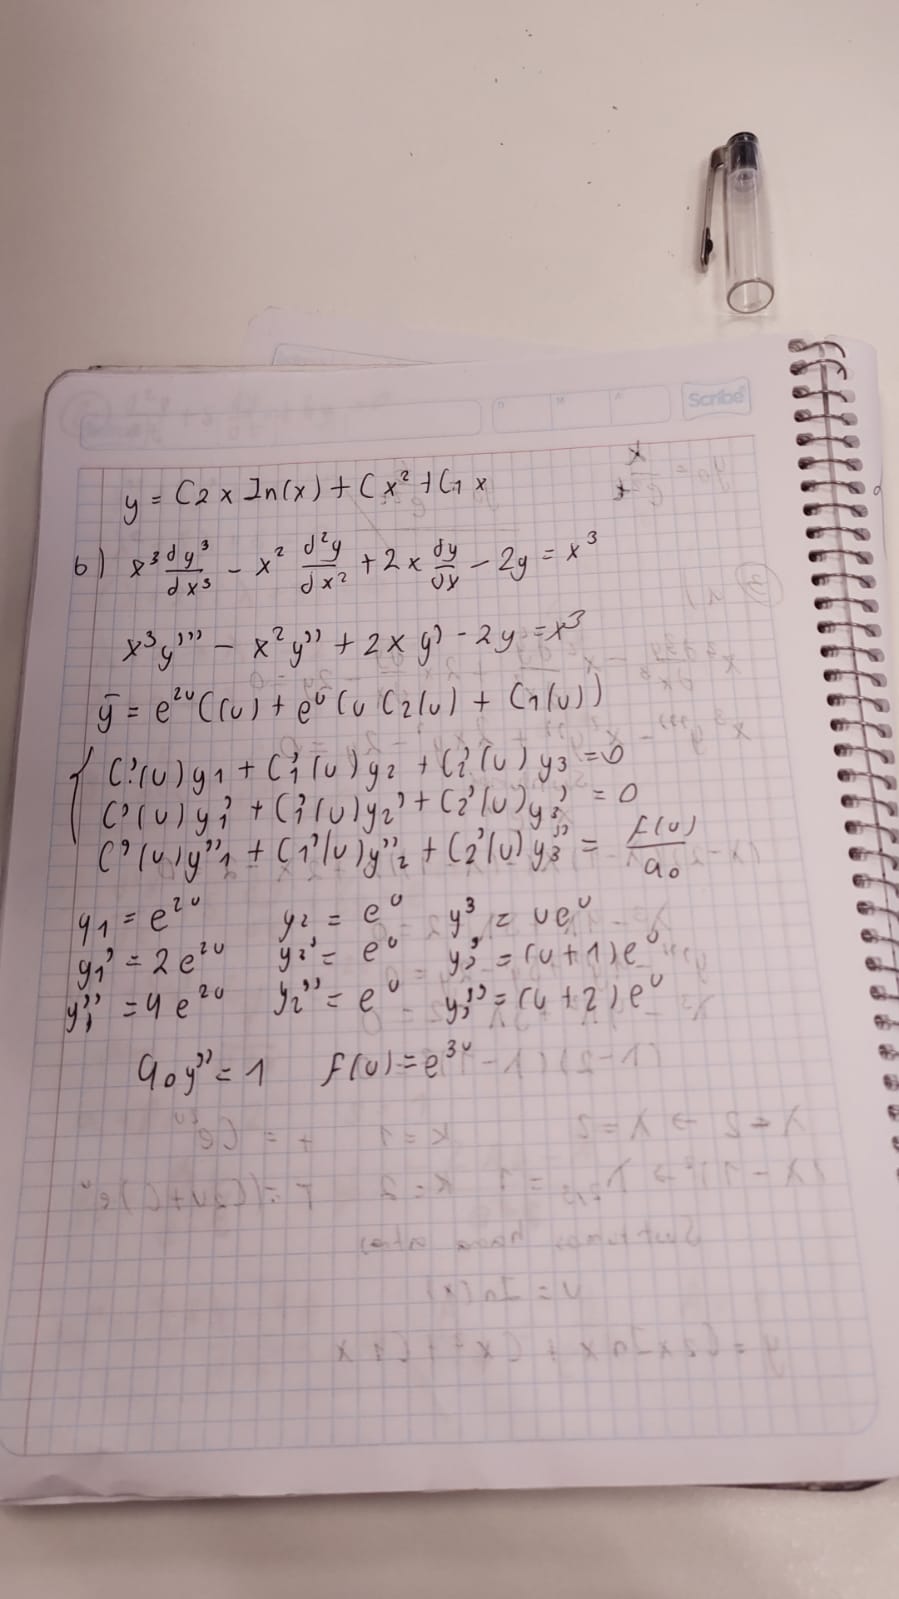 Scribe
y = C2 x In(x) + C x² + C1 x
b) x³ dy³/dx³ - x² d²y/dx² + 2x dy/dx - 2y = x³
x³y''' - x²y'' + 2xy' - 2y = x³
ȳ = e^2u C(u) + e^u (u C2(u) + C1(u))
C'(u) y1 + C1'(u) y2 + C2'(u) y3 = 0
C'(u) y1' + C1'(u) y2' + C2'(u) y3' = 0
C'(u) y1'' + C1'(u) y2'' + C2'(u) y3'' = f(u)/a0
y1 = e^2u y2 = e^u y^3 = u e^u
y1' = 2e^2u y2' = e^u y3' = (u+1)e^u
y1'' = 4e^2u y2'' = e^u y3'' = (u+2)e^u
a0y'' = 1 f(u) = e^3u